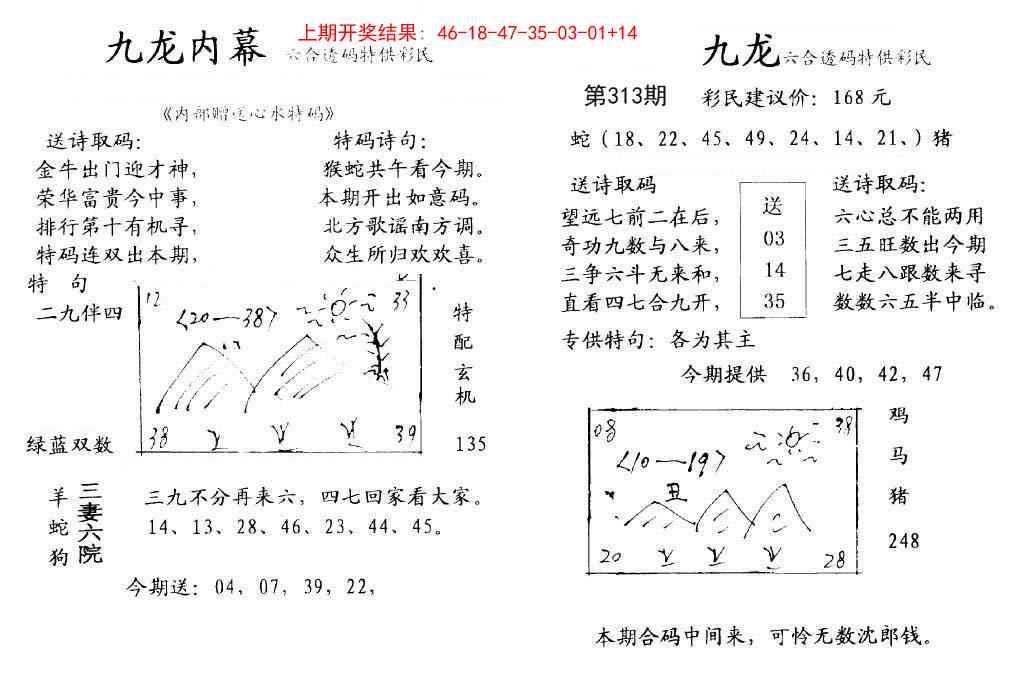 上期开奖结果：46-18-47-35-03-01+14
九龙内幕 六合透码特供彩民
《内部赠送心水特码》
送诗取码：
金牛出门迎才神，
荣华富贵今中事，
排行第十有机寻，
特码连双出本期，
特码诗句：
猴蛇共午看今期。
本期开出如意码。
北方歌谣南方调。
众生所归欢欢喜。
特 句
二九伴四
绿蓝双数
12
33
<20—38>
38
39
特
配
玄
机
135
羊
蛇
狗
三
妻
六
院
三九不分再来六，四七回家看大家。
14、13、28、46、23、44、45。
今期送：04，07，39，22，
九龙六合透码特供彩民
第313期 彩民建议价：168元
蛇（18、22、45、49、24、14、21、）猪
送诗取码
望远七前二在后，
奇功九数与八来，
三争六斗无来和，
直看四七合九开，
送
03
14
35
送诗取码：
六心总不能两用
三五旺数出今期
七走八跟数来寻
数数六五半中临。
专供特句：各为其主
今期提供 36，40，42，47
08
38
<10—19>
丑
20
28
鸡
马
猪
248
本期合码中间来，可怜无数沈郎钱。